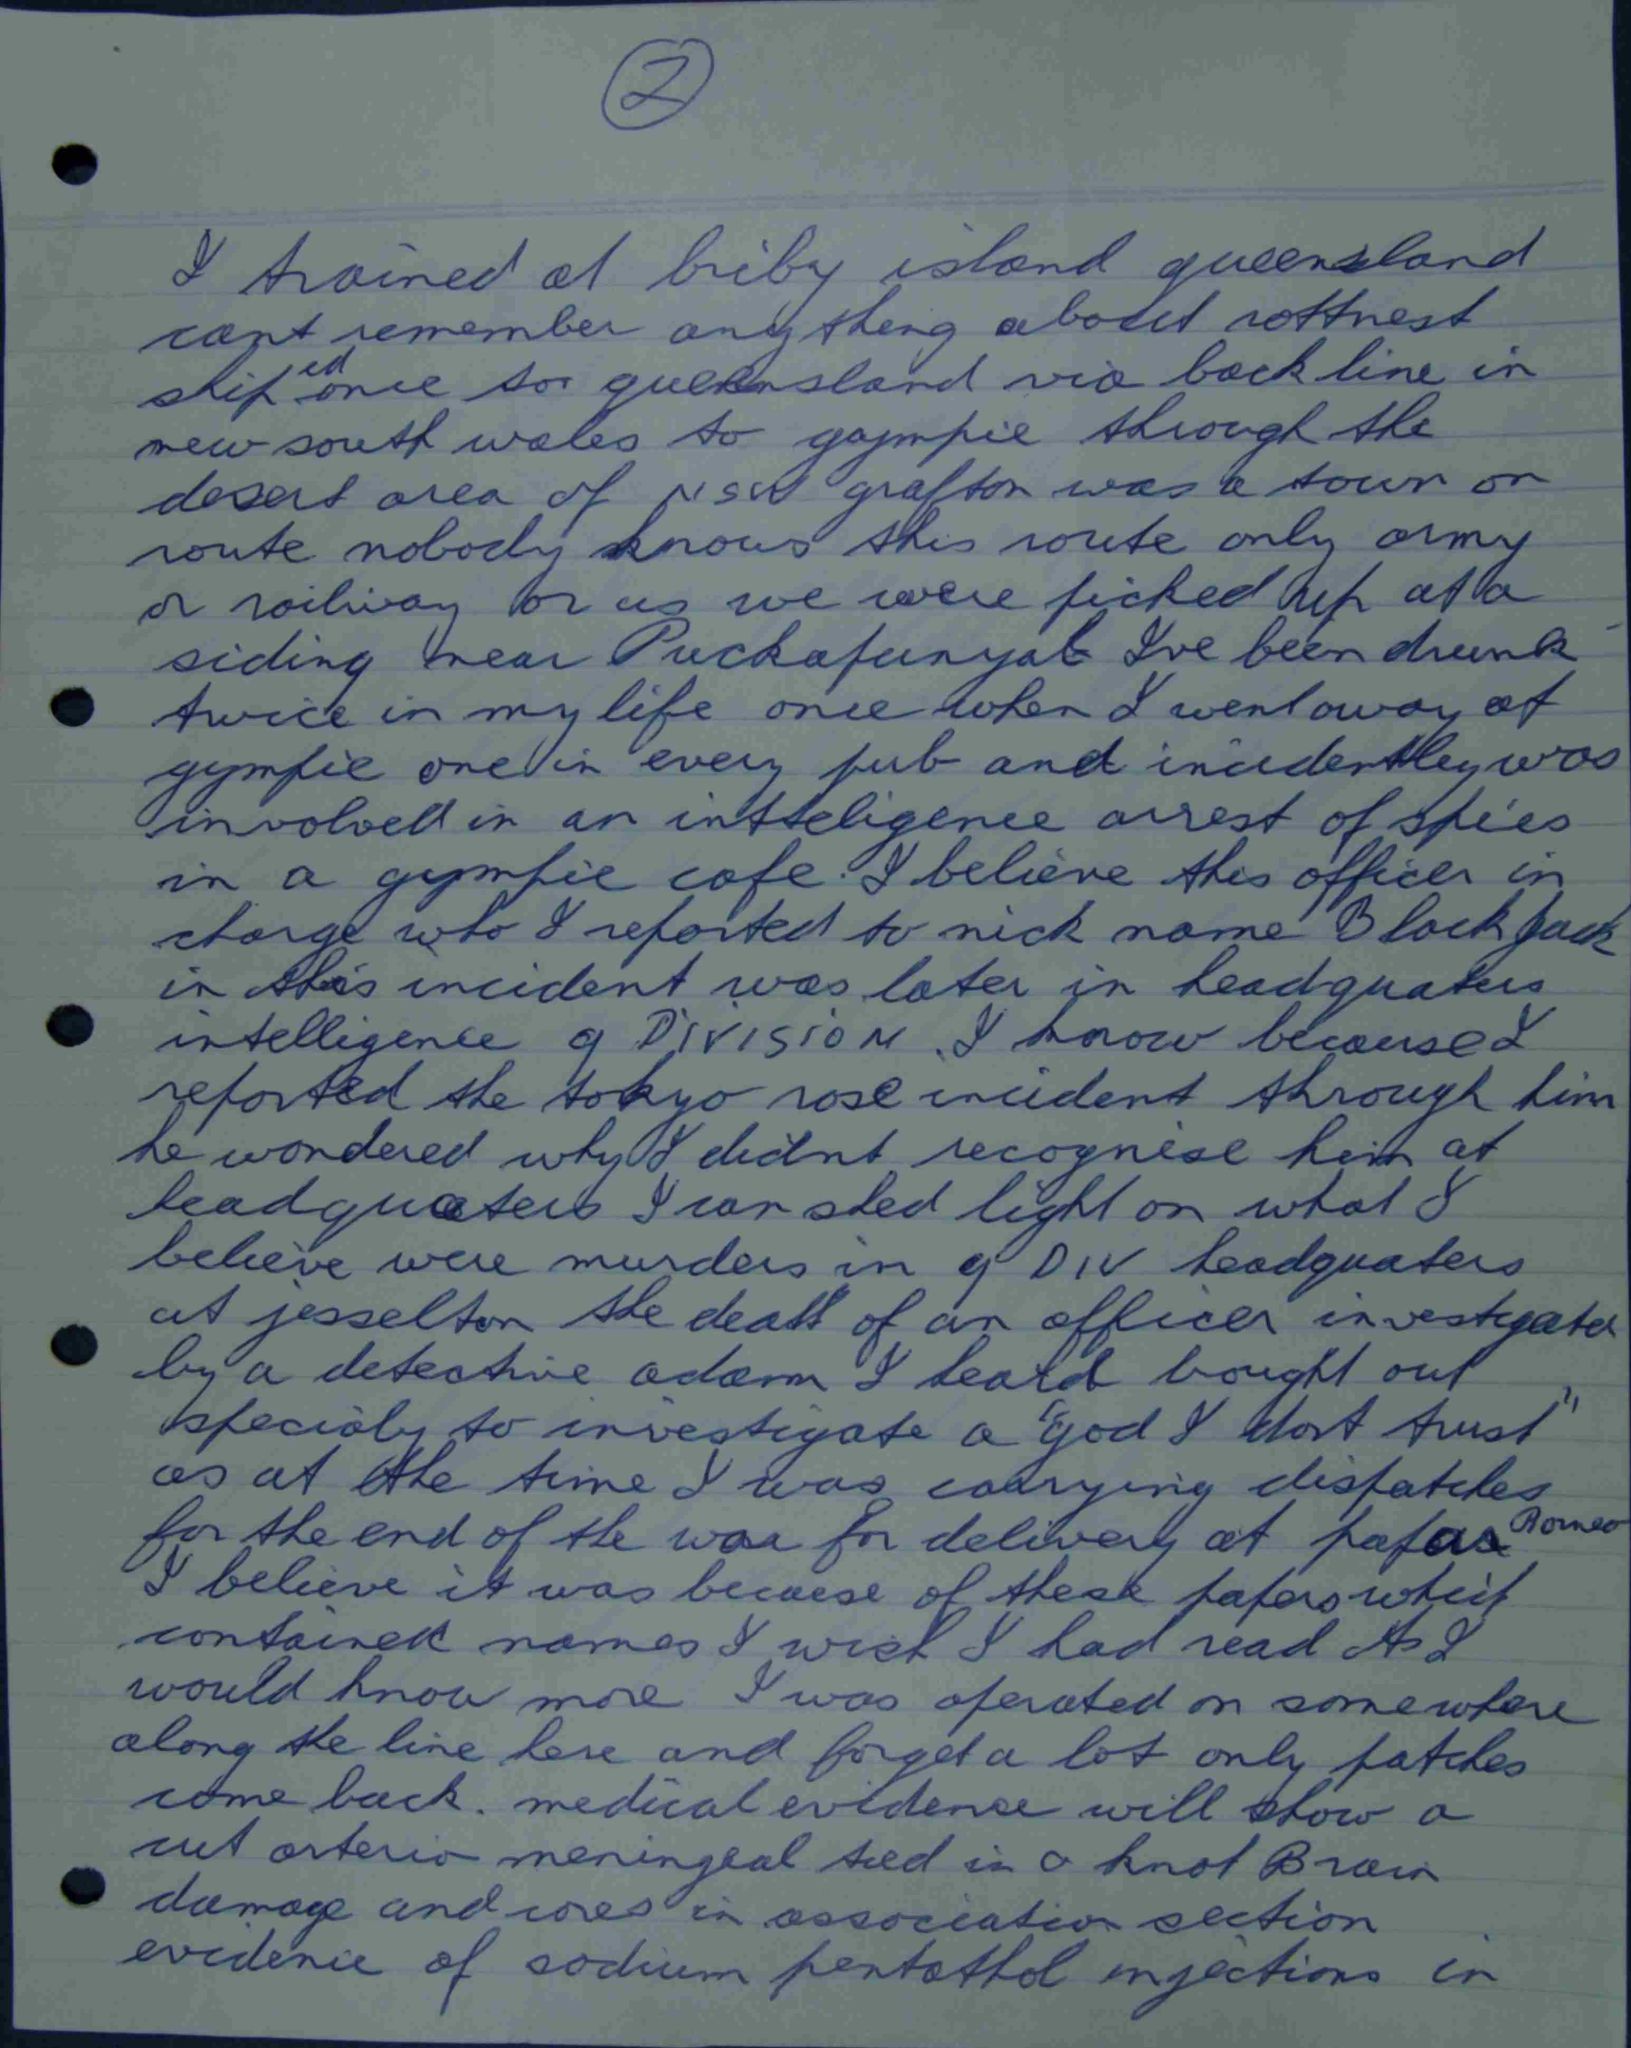 2
I trained at briby island queensland
cant remember any theng about rottnest
shiped once to queensland via back line in
new south wales to gympie through the
desert area of NSW grafton was a town on
route nobody knows this route only army
or railway or us we were picked up at a
siding near Puckapunyal I've been drunk
twice in my life once when I went away at
gympie one in every pub and incidentley was
involved in an intteligence arrest of spies
in a gympie cafe. I believe this officer in
charge who I reported to nick name Black Jack
in this incident was later in headquaters
intelligence 9 DIVISION. I know because I
reported the tokyo rose incident through him
he wondered why I didnt recognise him at
headquaters I can shed light on what I
believe were murders in 9 DIV headquaters
at jesselton the death of an officer investigated
by a detective adam I heard bought out
specialy to investigate a "god I dont trust"
as at the time I was carrying dispatches
for the end of the war for delivery at papar Borneo
I believe it was becaese of these papers which
contained names I wish I had read As I
would know more I was operated on somewhere
along the line here and forget a lot only patches
come back. medical evidence will show a
cut arterio meningeal tied in a knot Brain
damage and cores in association section
evidence of sodium pentothol injections in